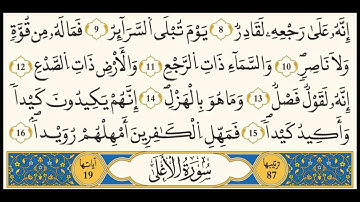 إِنَّهُۥ عَلَىٰ رَجْعِهِۦ لَقَادِرٌ ٨ يَوْمَ تُبْلَى ٱلسَّرَآئِرُ ٩ فَمَا لَهُۥ مِن قُوَّةٍ
وَلَا نَاصِرٍ ١٠ وَٱلسَّمَآءِ ذَاتِ ٱلرَّجْعِ ١١ وَٱلْأَرْضِ ذَاتِ ٱلصَّدْعِ ١٢
إِنَّهُۥ لَقَوْلٌ فَصْلٌ ١٣ وَمَا هُوَ بِٱلْهَزْلِ ١٤ إِنَّهُمْ يَكِيدُونَ كَيْدًا
١٥ وَأَكِيدُ كَيْدًا ١٦ فَمَهِّلِ ٱلْكَٰفِرِينَ أَمْهِلْهُمْ رُوَيْدًۢا
ترتيبها 87 سُورَةُ الأَعْلَىٰ آياتها 19